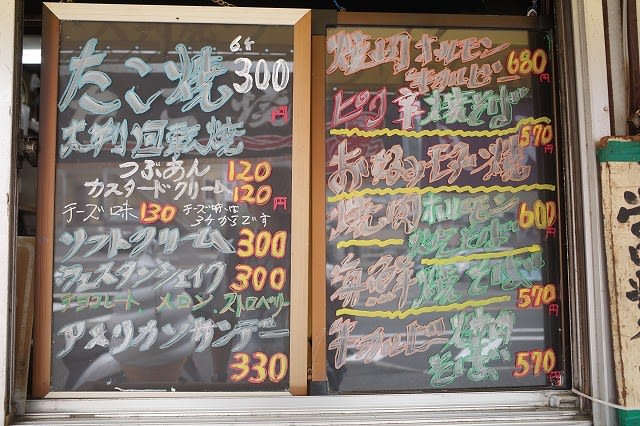 6ヶ
たこ焼 300円
大判回転焼
つぶあん 120
カスタードクリーム 120円
チーズ味 130 チーズ味は
3ケからです
ソフトクリーム 300
ウェスタンシェイク 300
チョコレート、メロン、ストロベリー
アメリカンサンデー
330
焼肉 ホルモン
牛カルビー 680円
ピリ辛焼そば
570円
おこのみモダン焼
焼肉 ホルモン 600円
焼そば
海鮮焼そば
570円
牛カルビー 焼肉
焼そば 570円